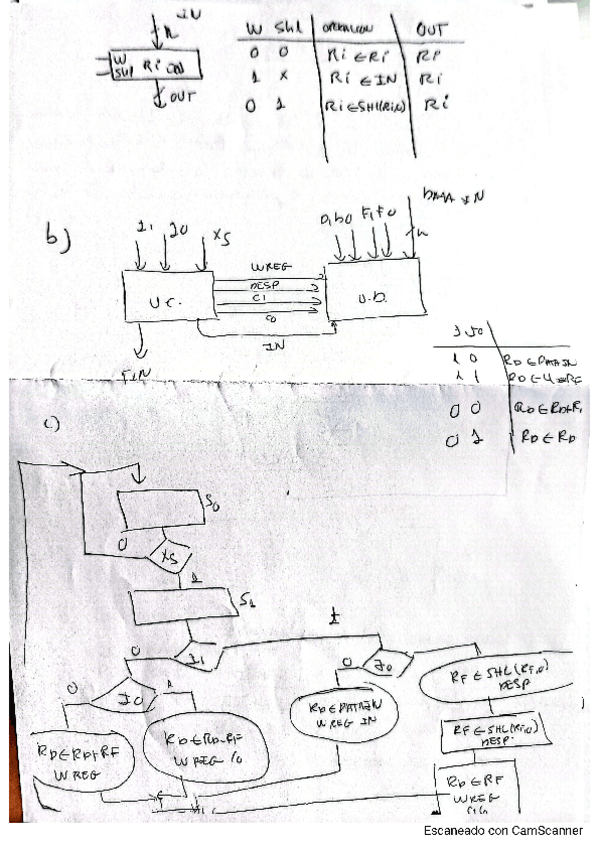 IN
n
W
SHL Ri
OUT
W SHL OPERACION OUT
0 0 Ri ∈ Ri Ri
1 x Ri ∈ IN Ri
0 1 Ri ∈ SHL(Ri,0) Ri
b)
I1 I0 XS
D1D0 F1F0
DATA IN
n
U.C.
WREG
DESP
C1
C0
IN
U.D.
FIN
1 0 RD ∈ DATAIN
1 1
0 0
0 1 RD ∈ RD
c)
S0
0
XS
1
S1
1
0 I1
0 I0 1
0 I0
RF ∈ SHL(RF,0)
DESP
RD ∈ DATAIN
WREG IN
RD ∈ RD+RF
WREG
RD ∈ RD-RF
WREG
RF ∈ SHL(RF,0)
DESP
RD ∈ RF
WREG
Escaneado con CamScanner